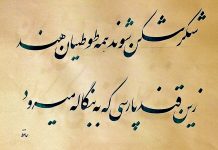 شکر شکن شوند همه طوطیان هند
زین قند پارسی که به بنگاله میرود
حافظ